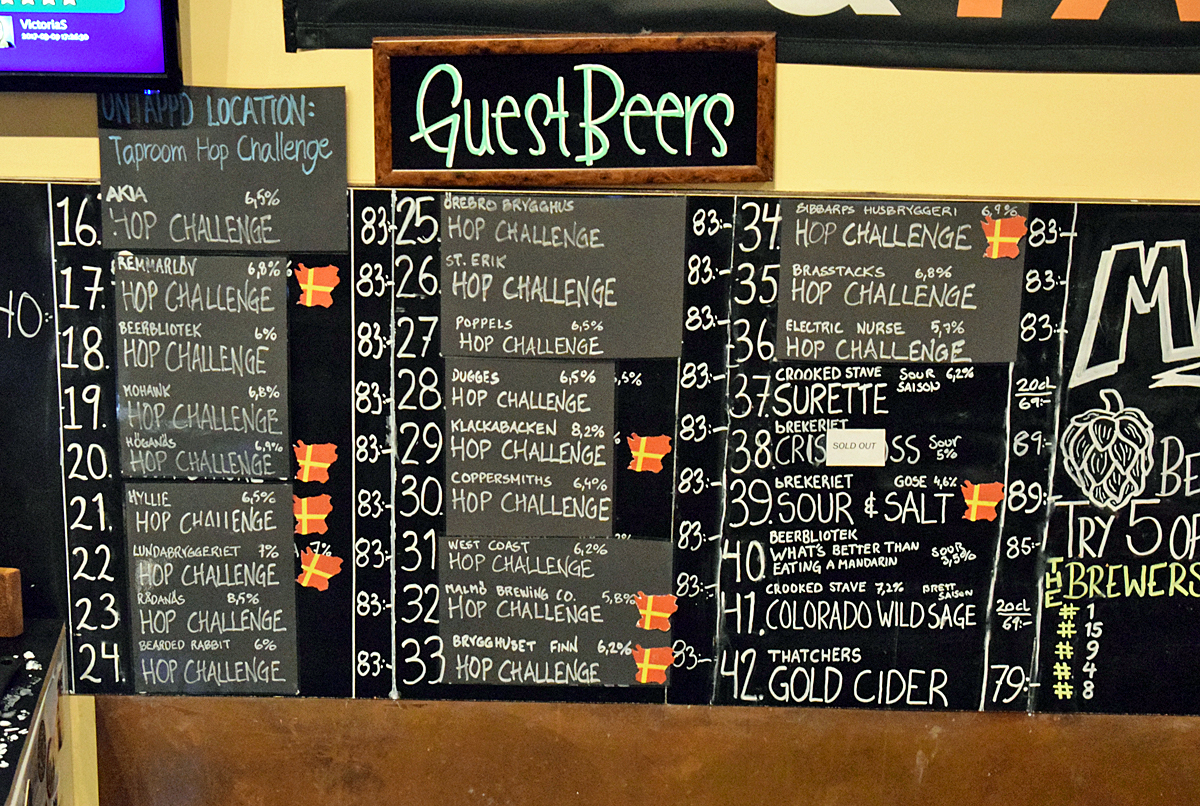 VictoriaS
Guest Beers
UNTAPPD LOCATION:
Taproom Hop Challenge
AKIA 6,5%
16. HOP CHALLENGE 83:-
REMMARLÖV 6,8%
17. HOP CHALLENGE 83:-
BEERBLIOTEK 6%
18. HOP CHALLENGE 83:-
MOHAWK 6,8%
19. HOP CHALLENGE 83:-
HÖGANÄS 6,9%
20. HOP CHALLENGE 83:-
HYLLIE 6,5%
21. HOP CHALLENGE 83:-
LUNDABRYGGERIET 7% 7%
22 HOP CHALLENGE 83:-
RÅDANÄS 8,5%
23 HOP CHALLENGE 83:-
BEARDED RABBIT 6%
24. HOP CHALLENGE 83:-
ÖREBRO BRYGGHUS
25. HOP CHALLENGE 83:-
ST. ERIK
26. HOP CHALLENGE 83:-
POPPELS 6,5%
27. HOP CHALLENGE 83:-
DUGGES 6,5% ,5%
28 HOP CHALLENGE 83:-
KLACKABACKEN 8,2%
29 HOP CHALLENGE 83:-
COPPERSMITHS 6,4%
30. HOP CHALLENGE 83:-
WEST COAST 6,2%
31 HOP CHALLENGE 83:-
MALMÖ BREWING CO. 5,8%
32 HOP CHALLENGE 83:-
BRYGGHUSET FINN 6,2%
33 HOP CHALLENGE 83:-
SIBBARPS HUSBRYGGERI 6,9%
34 HOP CHALLENGE 83:-
BRASSTACKS 6,8%
35 HOP CHALLENGE 83:-
ELECTRIC NURSE 5,7%
36. HOP CHALLENGE 83:-
CROOKED STAVE SOUR SAISON 6,2%
37. SURETTE 20cl 69:-
BREKERIET
38. CRIS SOLD OUT SS SOUR 5% 89:-
BREKERIET GOSE 4,6%
39. SOUR & SALT 89:-
BEERBLIOTEK
40. WHAT'S BETTER THAN
EATING A MANDARIN SOUR 3,5% 85:-
CROOKED STAVE 7,2% BRETT SAISON
41. COLORADO WILD SAGE 20cl 69:-
THATCHERS
42. GOLD CIDER 79:-
M
BE
TRY 5 OF
THE BREWERS
# 1
# 15
# 9
# 4
# 8